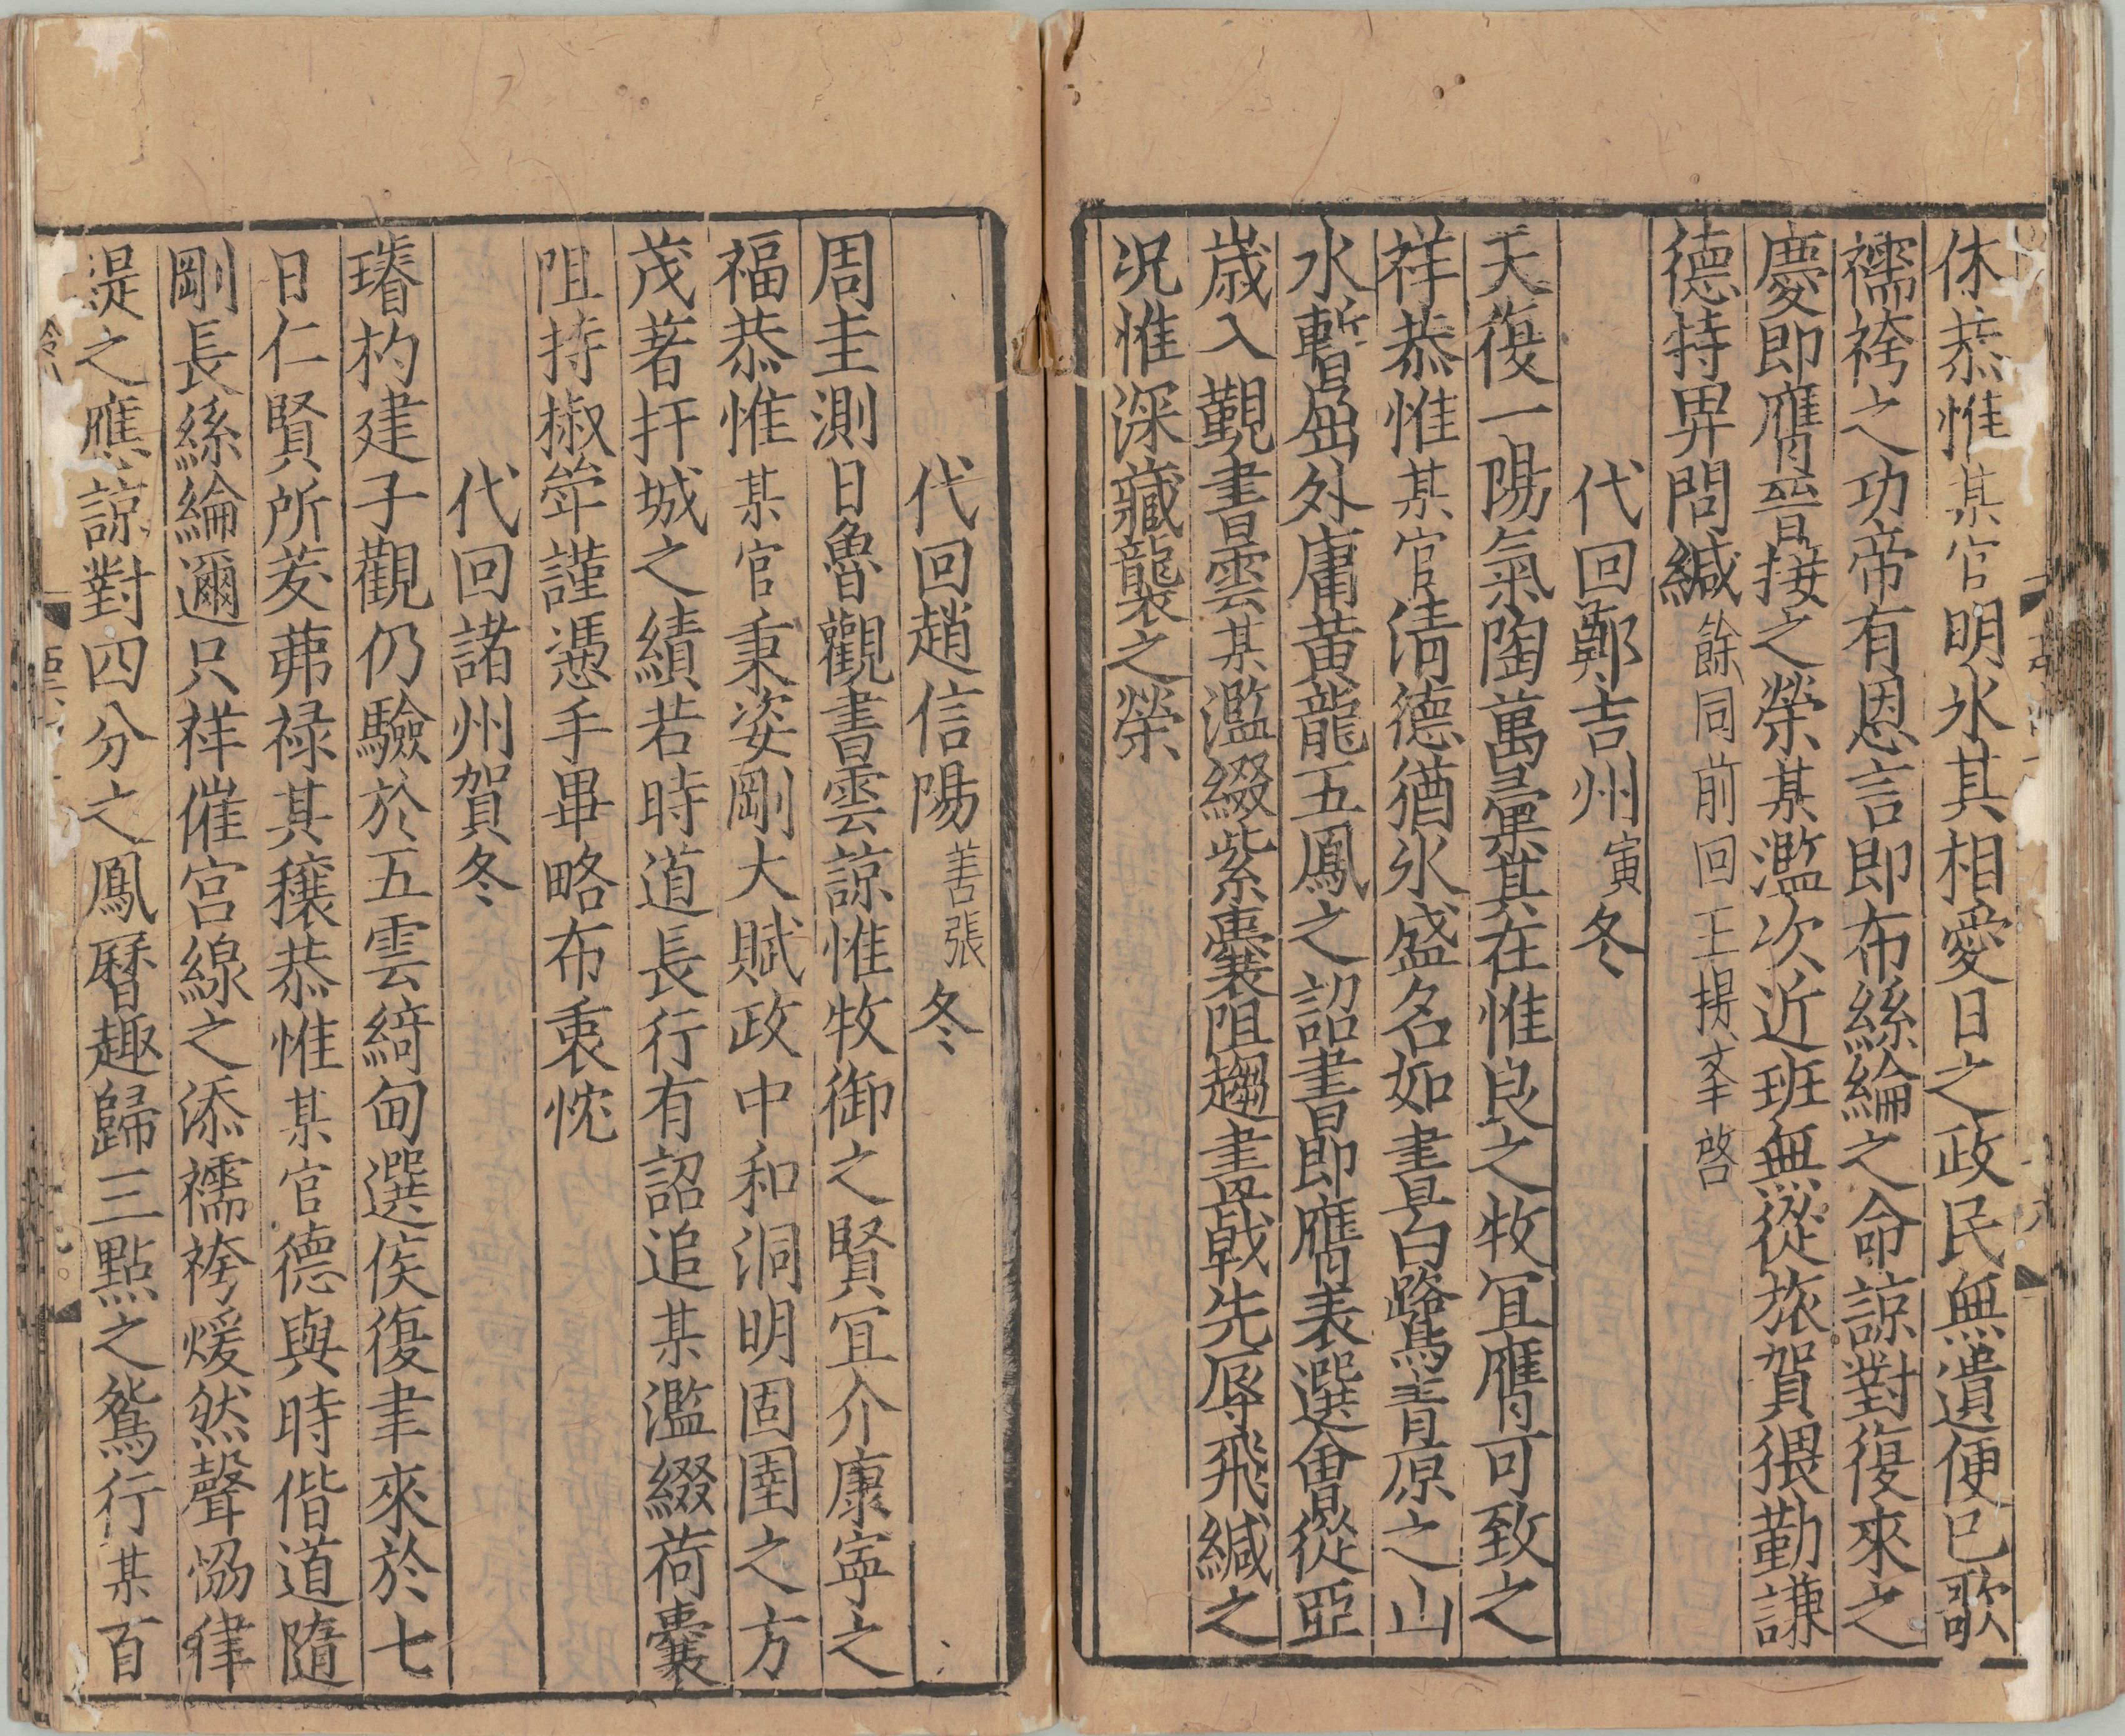 休恭惟某官明氷其相愛日之政民無遺便已歌
襦袴之功帝有恩言即布絲綸之命諒對復來之
慶即膺晉接之榮某濫次近班無從旅賀猥勤謙
德特畀問緘餘同前回王揚文啓
代回鄭吉州寅冬
天復一陽氣陶萬彙其在惟良之牧冝膺可致之
祥恭惟某官清德猶氷盛名如晝白鷺青原之山
水暫屈外庸黃龍五鳳之詔書即膺表選會從亞
歲入觀書雲某濫綴紫囊阻趨畫戟先辱飛緘之
况惟深藏襲之榮
代回趙信陽善張冬
周圭測日魯觀書雲諒惟牧御之賢冝介康寧之
福恭惟某官秉姿剛大賦政中和洞明固圉之方
茂著扞城之績若時道長行有詔追某濫綴荷囊
阻持椒斝謹憑手畢略布衷忱
代回諸州賀冬
璿杓建子觀仍驗於五雲綺甸選侯復聿來於七
日仁賢所茇茀禄其穰恭惟某官德與時偕道隨
剛長絲綸邇只祥催宮線之添襦袴煖然聲恊律
緹之應諒對四分之鳳曆趣歸三點之鴛行某百